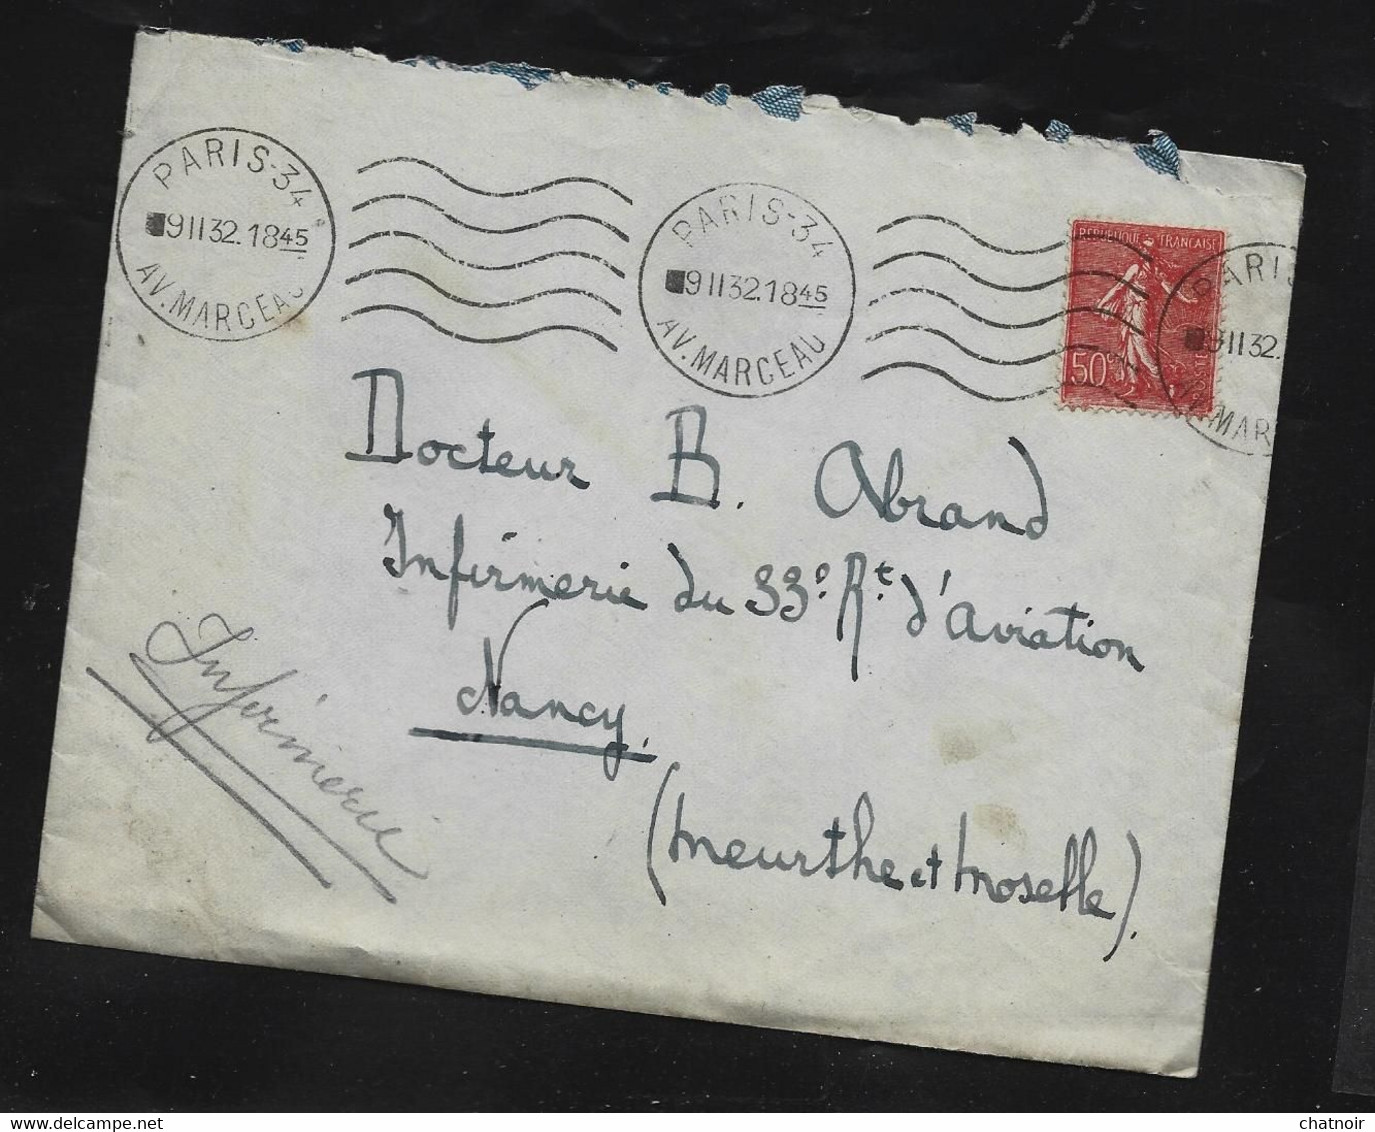 PARIS-34
9 II 32. 18 45
AV. MARCEAU
PARIS-34
9 II 32. 18 45
AV. MARCEAU
REPUBLIQUE FRANCAISE
50 c
POSTES
PARI
9 II 32.
MAR
Docteur B. Abrand
Infirmerie du 33e Rt d'aviation
Nancy.
(Meurthe et Moselle).
Infirmerie
chatnoir